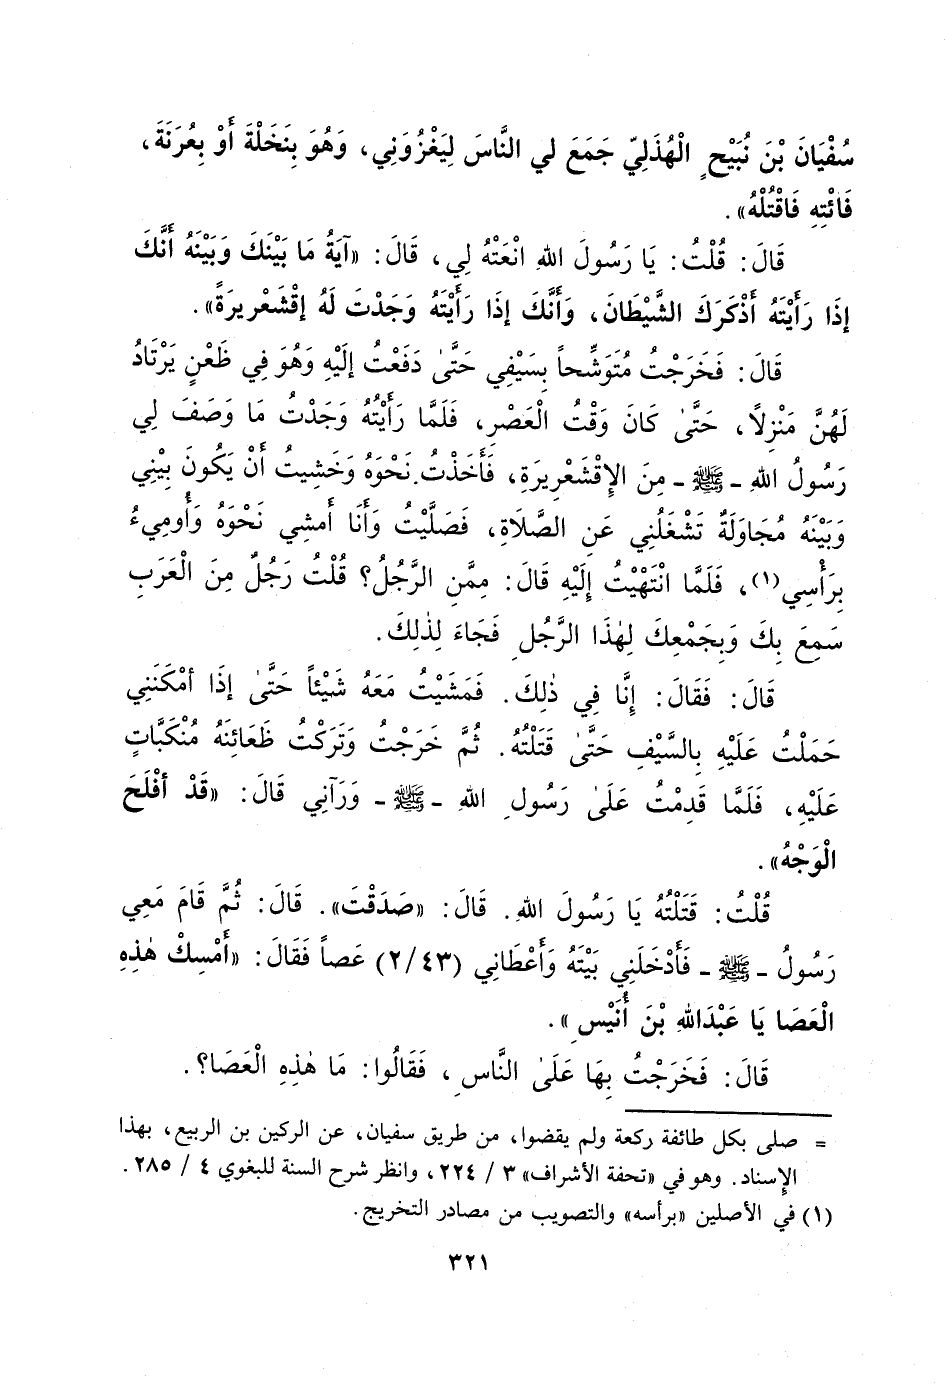 سُفْيَانَ بْنَ نُبَيْحٍ الْهُذَلِيّ جَمَعَ لي النَّاسَ لِيَغْزُوَنِي، وَهُوَ بِنَخْلَةَ أَوْ بِعُرَنَةَ،
فَائْتِهِ فَاقْتُلْهُ».
قَالَ: قُلْتُ: يَا رَسُولَ اللهِ انْعَتْهُ لِي، قَالَ: «آيَةُ مَا بَيْنَكَ وَبَيْنَهُ أَنَّكَ
إذَا رَأَيْتَهُ أَذْكَرَكَ الشَّيْطَانَ، وَأَنَّكَ إذَا رَأَيْتَهُ وَجَدْتَ لَهُ إقْشَعْرِيرَةً».
قَالَ: فَخَرَجْتُ مُتَوَشِّحاً بِسَيْفِي حَتَّىٰ دَفَعْتُ إلَيْهِ وَهُوَ فِي ظَعْنٍ يَرْتَادُ
لَهُنَّ مَنْزِلًا، حَتَّىٰ كَانَ وَقْتُ الْعَصْرِ، فَلَمَّا رَأَيْتُهُ وَجَدْتُ مَا وَصَفَ لِي
رَسُولُ اللهِ - ﷺ - مِنَ الإِقْشَعْرِيرَةِ، فَأَخَذْتُ نَحْوَهُ وَخَشِيتُ أَنْ يَكُونَ بِيْنِي
وَبَيْنَهُ مُجَاوَلَةٌ تَشْغَلُنِي عَنِ الصَّلَاةِ، فَصَلَّيْتُ وَأَنَا أَمشِي نَحْوَهُ وَأُومِيءُ
بِرَأْسِي(١)، فَلَمَّا انْتَهَيْتُ إلَيْهِ قَالَ: مِمَّنِ الرَّجُلُ؟ قُلْتُ رَجُلٌ مِنَ الْعَرَبِ
سَمِعَ بِكَ وَبِجَمْعِكَ لِهٰذَا الرَّجُلِ فَجَاءَ لِذٰلِكَ.
قَالَ: فَقَالَ: إنَّا فِي ذٰلِكَ. فَمَشَيْتُ مَعَهُ شَيْئاً حَتَّىٰ إذَا أَمْكَنَنِي
حَمَلْتُ عَلَيْهِ بِالسَّيْفِ حَتَّىٰ قَتَلْتُهُ. ثُمَّ خَرَجْتُ وَتَرَكْتُ ظَعَائِنَهُ مُنْكَبَّاتٍ
عَلَيْهِ، فَلَمَّا قَدِمْتُ عَلَىٰ رَسُولِ اللهِ - ﷺ - وَرَآنِي قَالَ: «قَدْ أَفْلَحَ
الْوَجْهُ».
قُلْتُ: قَتَلْتُهُ يَا رَسُولَ اللهِ. قَالَ: «صَدَقْتَ». قَالَ: ثُمَّ قَامَ مَعِي
رَسُولُ - ﷺ - فَأَدْخَلَنِي بَيْتَهُ وَأَعْطَانِي (٢/٤٣) عَصاً فَقَالَ: «أَمْسِكْ هٰذِهِ
الْعَصَا يَا عَبْدَاللهِ بْنَ أُنَيْسٍ».
قَالَ: فَخَرَجْتُ بِهَا عَلَىٰ النَّاسِ، فَقَالُوا: مَا هٰذِهِ الْعَصَا؟.
= صلى بكل طائفة ركعة ولم يقضوا، من طريق سفيان، عن الركين بن الربيع، بهذا
الإسناد. وهو في «تحفة الأشراف» ٣ / ٢٢٤، وانظر شرح السنة للبغوي ٤ / ٢٨٥.
(١) في الأصلين «برأسه» والتصويب من مصادر التخريج.
٣٢١